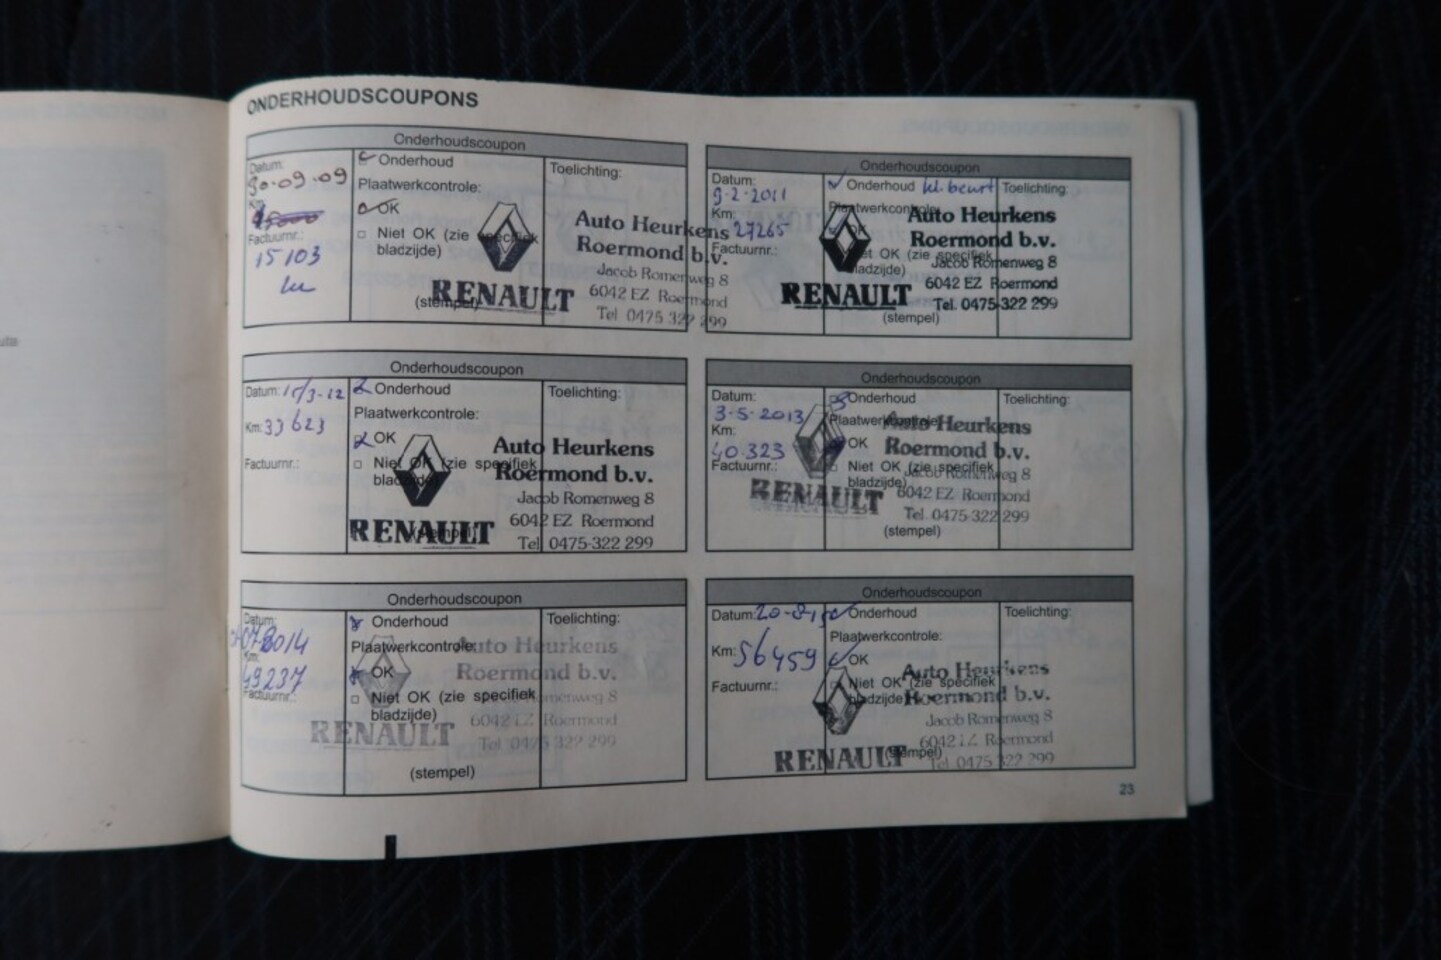 ONDERHOUDSCOUPONS
Onderhoudscoupon
Datum:
30-09-09
Km:
Factuurnr.:
15103
Onderhoud
Plaatwerkcontrole:
OK
Niet OK (zie specifiek
bladzijde)
(stempel)
Toelichting:
Auto Heurkens
Roermond b.v.
Jacob Romenweg 8
6042 EZ Roermond
Tel 0475-322 299
RENAULT
Onderhoudscoupon
Datum:
9-2-2011
Km:
27265
Factuurnr.:
Onderhoud kl. beurt
Plaatwerkcontrole:
OK
Niet OK (zie specifiek
bladzijde)
(stempel)
Toelichting:
Auto Heurkens
Roermond b.v.
Jacob Romenweg 8
6042 EZ Roermond
Tel. 0475-322 299
RENAULT
Onderhoudscoupon
Datum: 15/3-12
Km: 33623
Factuurnr.:
Onderhoud
Plaatwerkcontrole:
OK
Niet OK (zie specifiek
bladzijde)
(stempel)
Toelichting:
Auto Heurkens
Roermond b.v.
Jacob Romenweg 8
6042 EZ Roermond
Tel 0475-322 299
RENAULT
Onderhoudscoupon
Datum:
3-5-2013
Km:
40.323
Factuurnr.:
Onderhoud
Plaatwerkcontrole:
OK
Niet OK (zie specifiek
bladzijde)
(stempel)
Toelichting:
Auto Heurkens
Roermond b.v.
Jacob Romenweg 8
6042 EZ Roermond
Tel. 0475-322 299
RENAULT
Onderhoudscoupon
Datum:
Km:
49237
Factuurnr.:
Onderhoud
Plaatwerkcontrole:
OK
Niet OK (zie specifiek
bladzijde)
(stempel)
Toelichting:
Auto Heurkens
Roermond b.v.
Jacob Romenweg 8
6042 EZ Roermond
Tel 0475-322 299
RENAULT
Onderhoudscoupon
Datum:
Km: 56459
Factuurnr.:
Onderhoud
Plaatwerkcontrole:
OK
Niet OK (zie specifiek
bladzijde)
(stempel)
Toelichting:
Auto Heurkens
Roermond b.v.
Jacob Romenweg 8
6042 EZ Roermond
Tel 0475-322 299
RENAULT
23